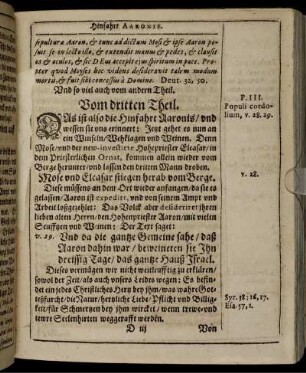 Hinfahrt AARONIS.
sepultura Aaron, & tunc ad dictum Mosi & ipse Aaron po-
suit se in lectulo, & extendit manus & pedes, & clausit
os & oculos, & sic DEus accepit ejus spiritum in pace. Prop-
ter quod Moyses hoc videns desideravit talem modum
mortis, & fuit sibi concessus à Domino. Deut. 32, 50.
Und so viel auch vom andern Theil.
Vom dritten Theil.
DAs ist also die Hinfahrt Aaronis/ und
wessen sie uns erinnert: Jetzt gehet es nun an
ein Winseln/ Wehklagen und Weinen. Denn
Mose/ und der new-investirte Hohepriester Eleasar/ in
dem Priesterlichen Ornat, kommen allein wieder vom
Berge herunter/ und lassen den dritten Mann droben.
Mose und Eleasar stiegen herab vom Berge.
Diese müssens an dem Ort wieder anfangen/ da sie es
gelassen/ Aaron ist expedirt, und von seinem Ampt und
Arbeit loßgezehlet: Das Volck aber desiderirt ihren
lieben alten Herrn/ den Hohenpriester Aaron/ mit vielen
Seufftzen und Weinen: Der Text saget:
v. 29. Und da die gantze Gemeine sahe/ daß
Aaron dahin war/ beweineten sie Ihn
dreissig Tage/ das gantze Hauß Israel.
Dieses vermögen wir nicht weitläufftig zu erklären/
sowol der Zeit/ als auch unsers Leides wegen: Es befin-
det ein jedes Christliches Herz bey ihm/ was wahre Got-
tesfurcht/ die Natur/ hertzliche Liebe/ Pflicht und Billig-
keit/ für Schmertzen bey ihm wircket/ wenn trewe und
tewre Seelenhirten weggerafft werden.
D iij
Von
P. III.
Populi condo-
lium, v. 28. 29.
v. 28.
Syr. 38; 16, 17.
Esa. 57, 1.